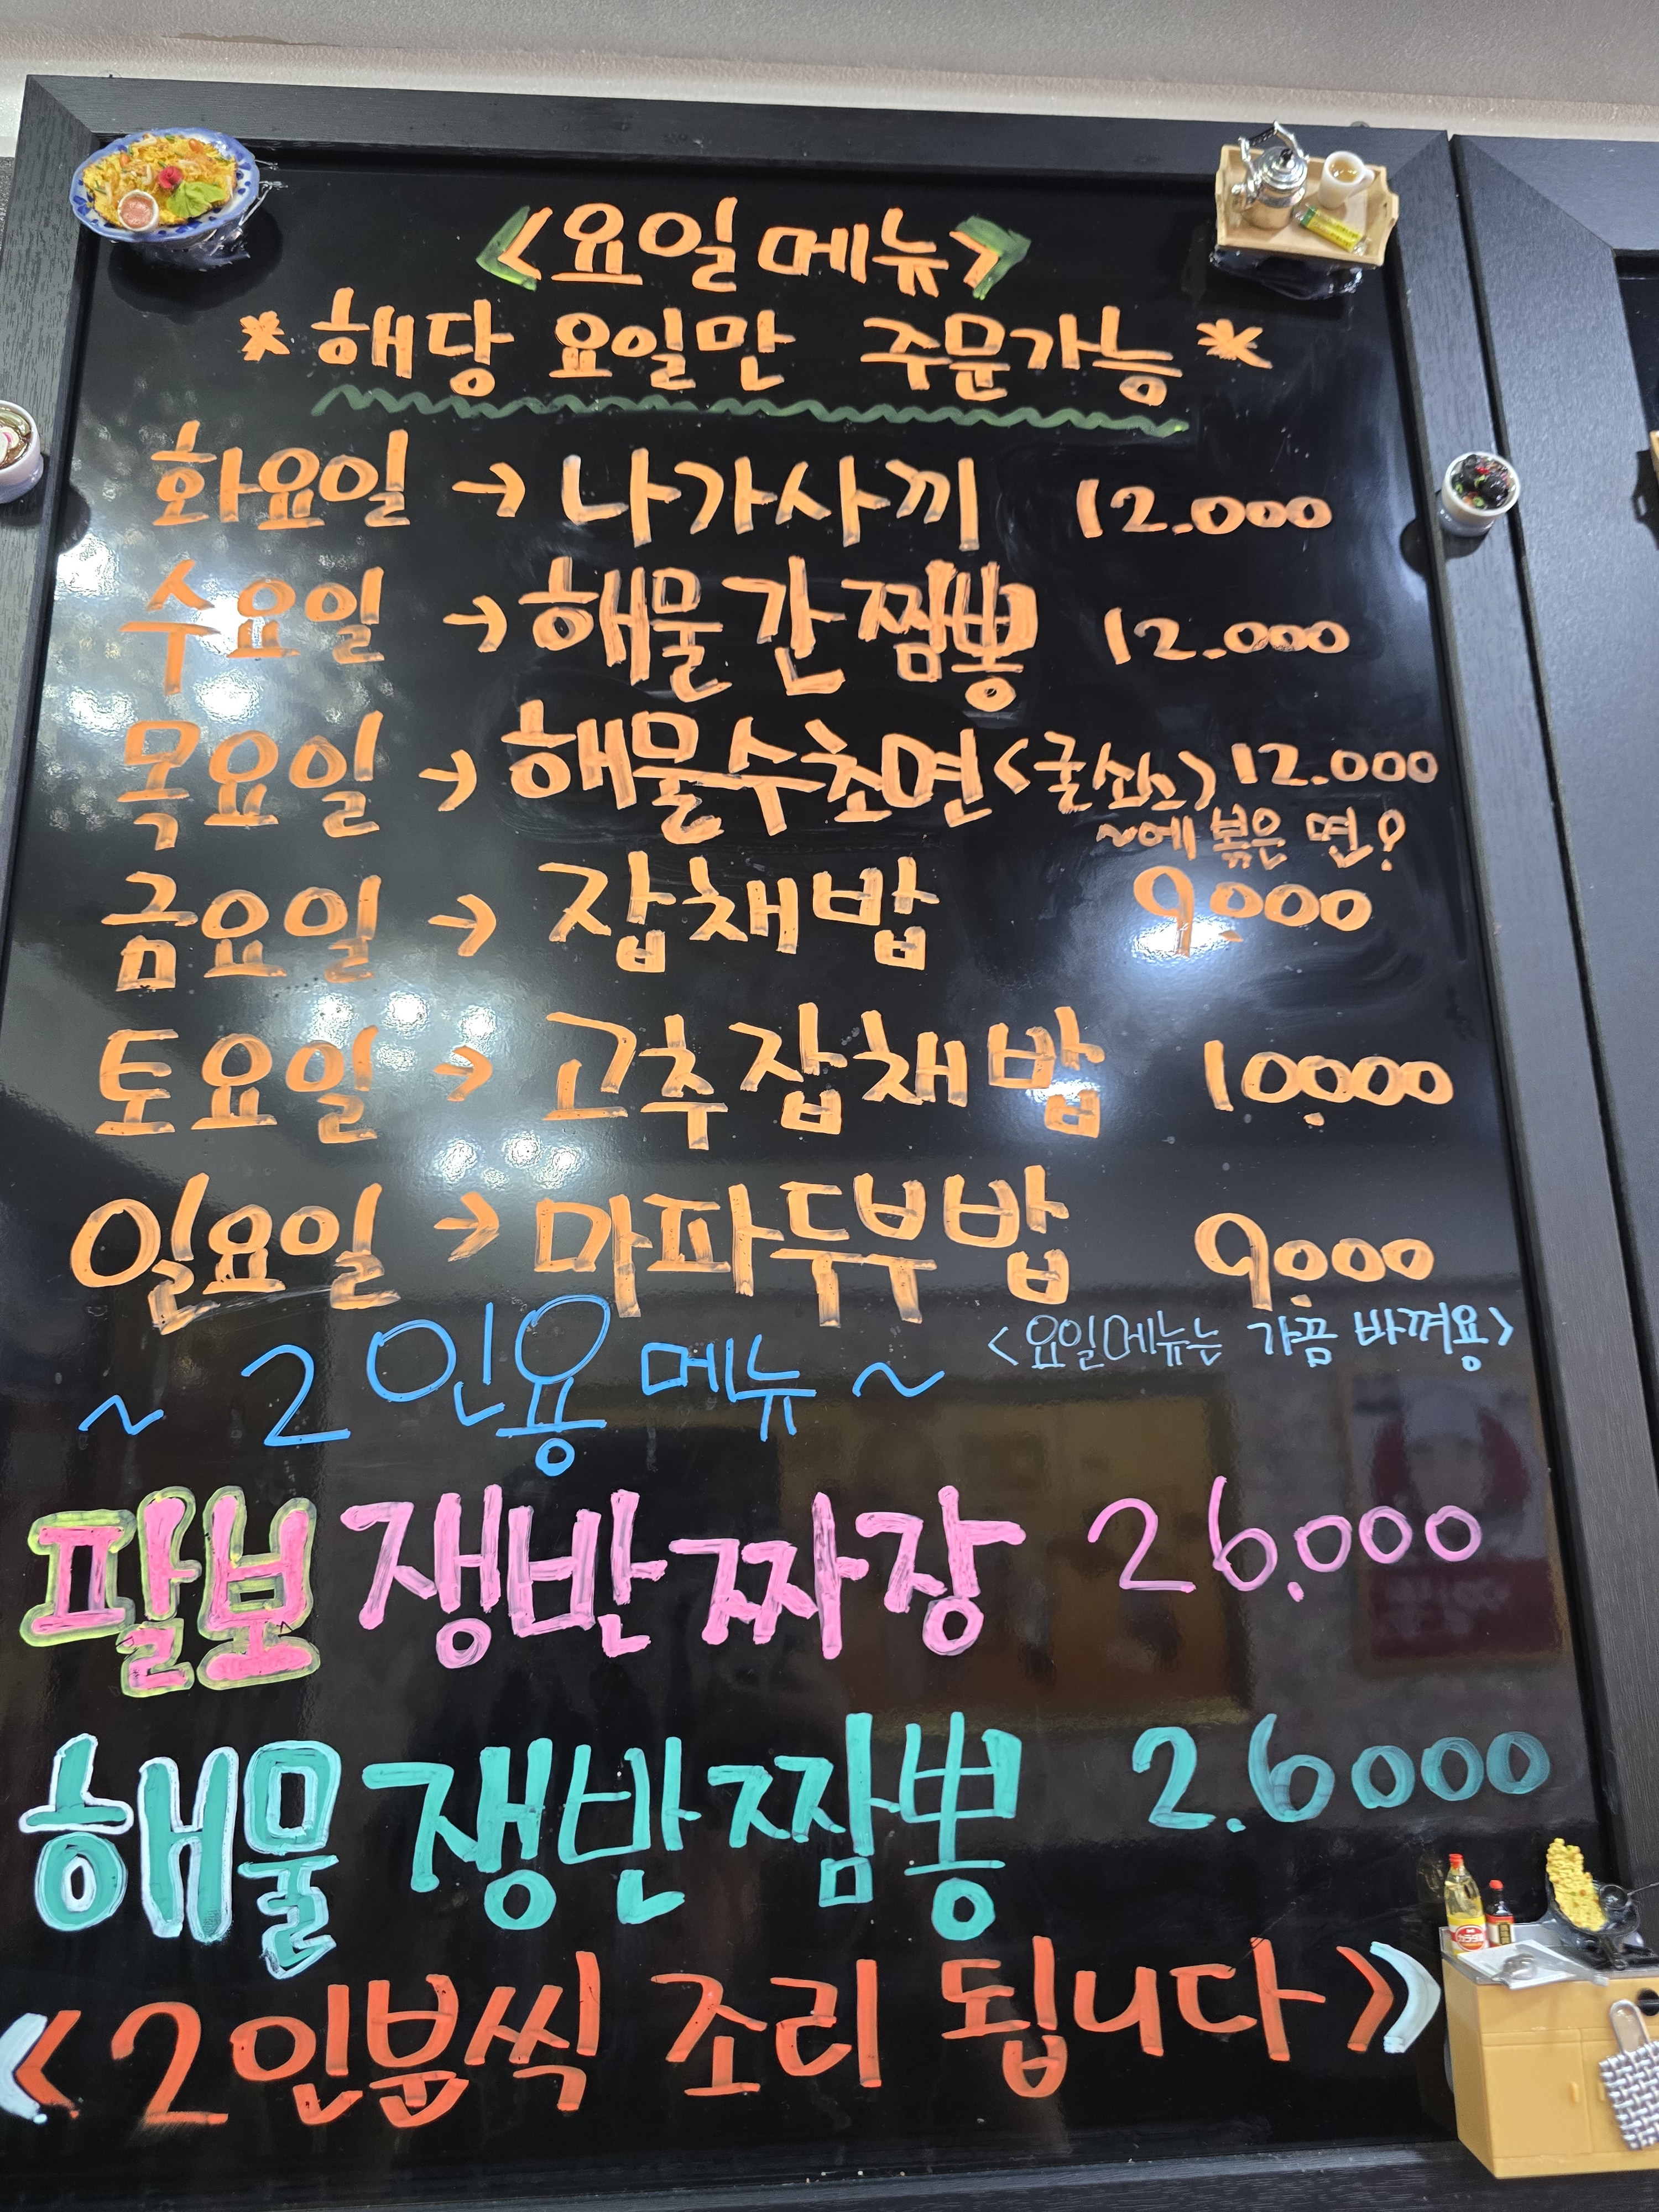 <요일메뉴>
*해당 요일만 주문가능*
화요일 → 나가사끼 12.000
수요일 → 해물간짬뽕 12.000
목요일 → 해물수초면<굴쏘스> 12.000
~에 볶은 면?
금요일 → 잡채밥 9.000
토요일 → 고추잡채밥 10.000
일요일 → 마파두부밥 9.000
<요일메뉴는 가끔 바껴용>
~ 2인용 메뉴 ~
팔보 쟁반짜장 26.000
해물 쟁반짬뽕 2.6000
<2인분씩 조리 됩니다>